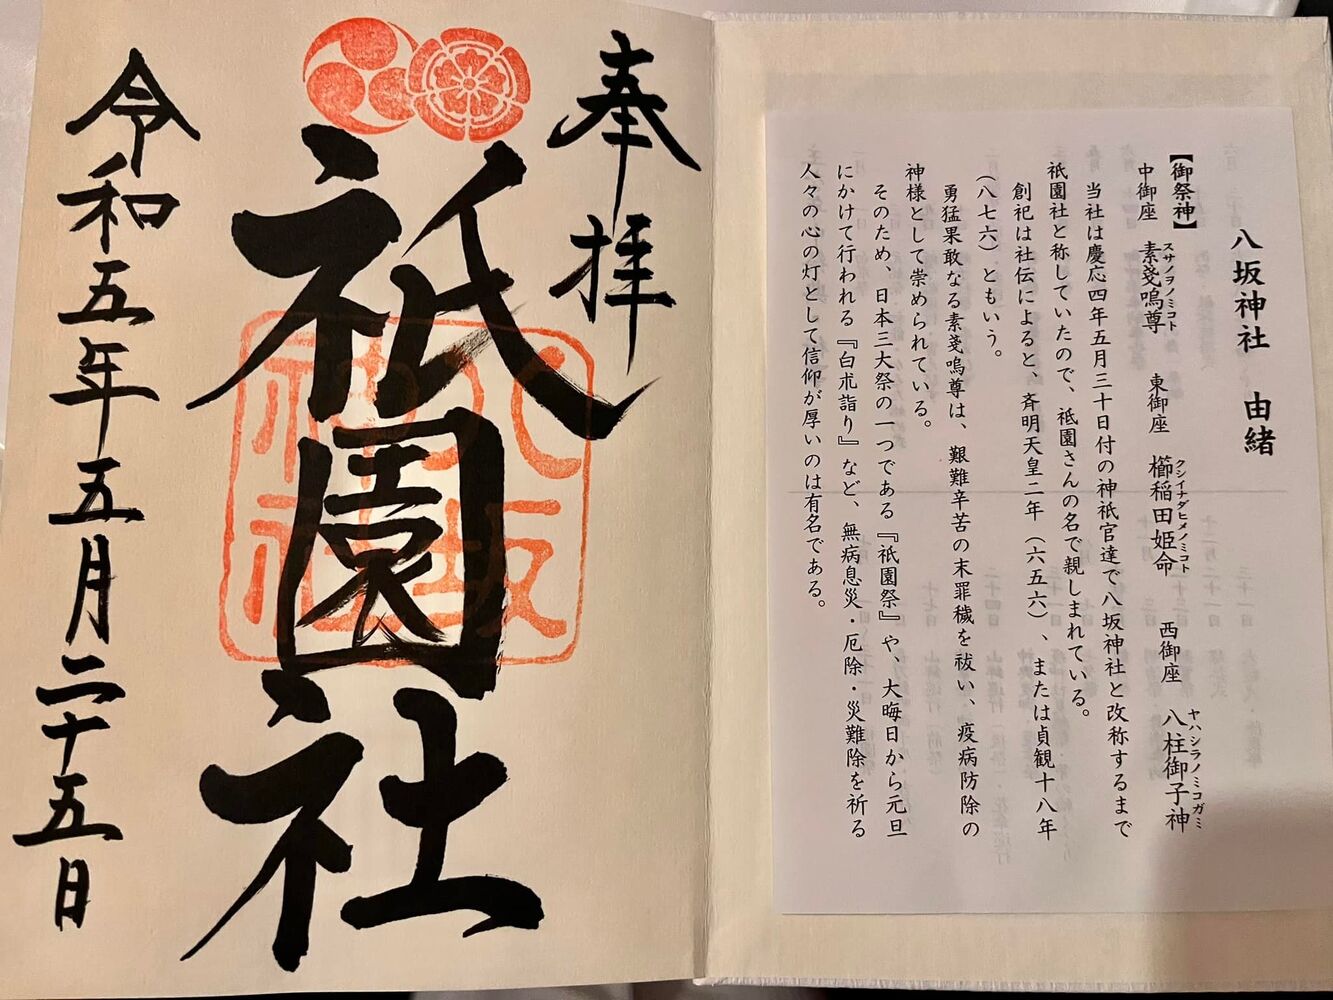 八坂神社 由緒
【御祭神】
中御座 素戔嗚尊 東御座 櫛稲田姫命 西御座 八柱御子神
スサノヲノミコト クシイナダヒメノミコト ヤハシラノミコガミ
当社は慶応四年五月三十日付の神祇官達で八坂神社と改称するまで
祇園社と称していたので、祗園さんの名で親しまれている。
創祀は社伝によると、斉明天皇二年（六五六）、または貞観十八年
（八七六）ともいう。
勇猛果敢なる素戔嗚尊は、艱難辛苦の末罪穢を祓い、疫病防除の
神様として崇められている。
そのため、日本三大祭の一つである『祇園祭』や、大晦日から元旦
にかけて行われる『白朮詣り』など、無病息災・厄除・災難除を祈る
人々の心の灯として信仰が厚いのは有名である。
奉拝
祇園社
八坂神社
令和五年五月二十五日